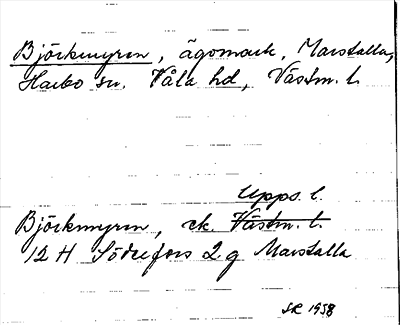 Björkmyren, ägomark, Marstalla,
Harbo sn. Våla hd, Västm. l.
Upps. l.
Björkmyren, ek. Västm. l.
12 H Söderfors 2 g Marstalla
SR 1958